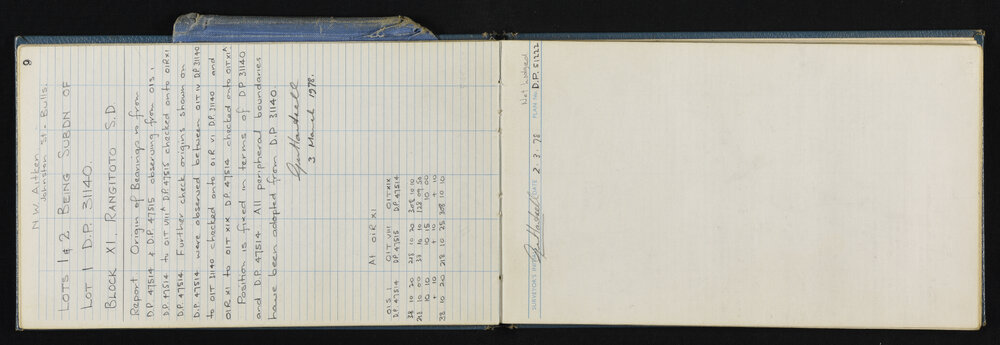 9
N.W. Aitken
Johnston St. Bulls.
LOTS 1 & 2 BEING SUBDN OF
LOT 1 D.P. 31140.
BLOCK XI, RANGITOTO S.D
Report Origin of Bearings is from
D.P. 47514 & D.P. 47515 observing from OIS 1,
D.P. 47514 to OIT VIII^A D.P. 47515 checked onto OIR XI
D.P. 47514. Further check origins shown on
D.P. 47514 were observed between OIT IV D.P. 31140
to OIT 31140 checked onto OIR VI D.P. 31140 and
OIR XI to OIT XIX D.P. 47514 checked onto OIT XI^A
Position is fixed in terms of D.P 31140
and D.P. 47514 All peripheral boundaries
have been adopted from D.P 31140.
3 March 1978.
At OIR XI
OIS 1 OIT VIII OIT XIX
D.P. 47514 D.P. 47515 D.P. 47514
38 10 20 218 10 20 308 10 10
218 10 00 38 10 10 128 09 50
10 10 10 15 10 00
+ 10 + 10 + 10
38 10 20 218 10 25 308 10 10
SURVEYOR'S
DATE 2. 3. 78
PLAN No. D.P. 51222
Not Lodged